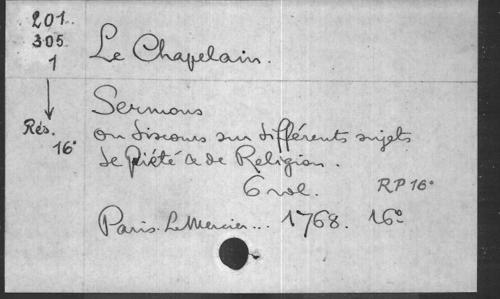 201.
305.
1
Le Chapelain.
Rés.
16°
Sermons
ou discours sur différents sujets
de Piété & de Religion.
6 vol.
RP 16°
Paris. Le Mercier... 1768. 16°